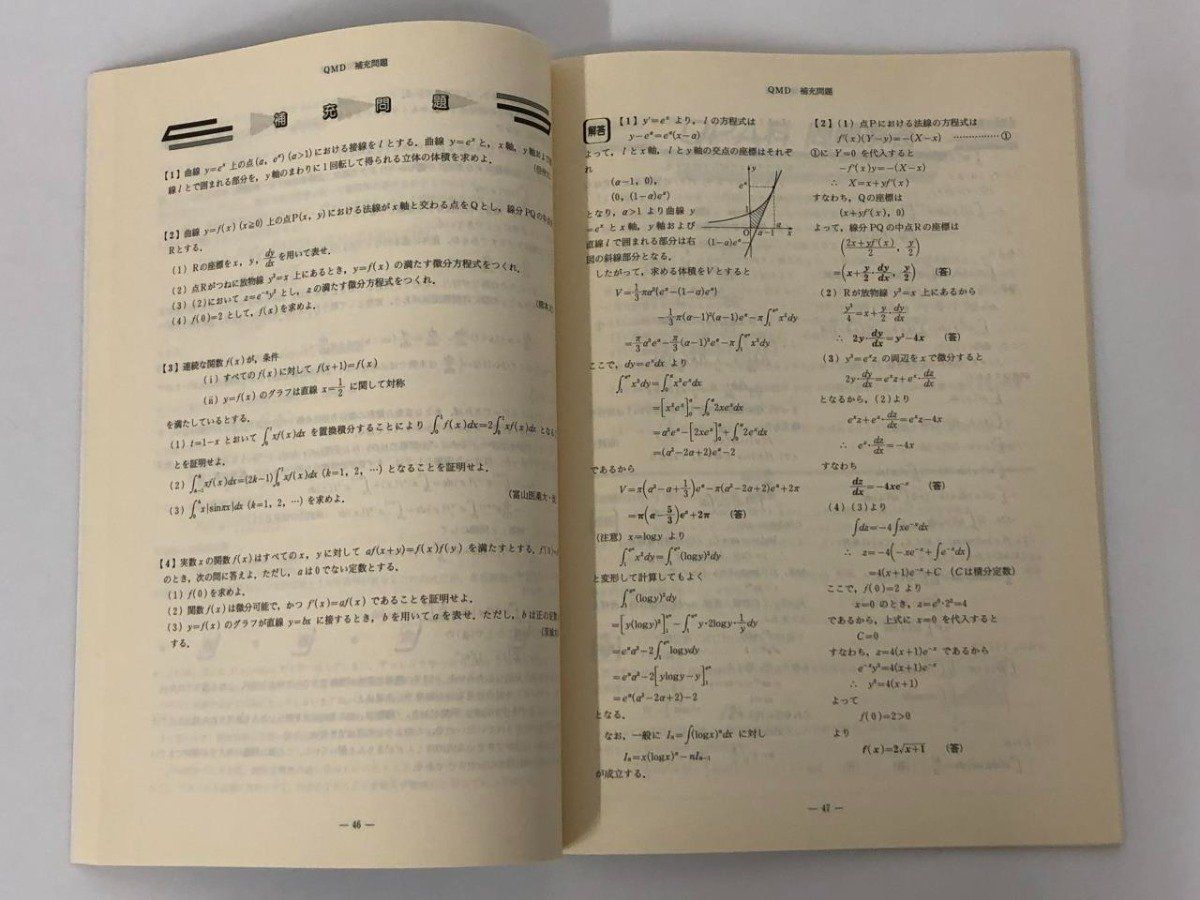 QMD 補充問題
補充問題
【1】曲線 y=eˣ 上の点(α, e^α)(α>1)における接線を l とする．曲線 y=eˣ と，x軸，y軸および接
線 l とで囲まれる部分を，y軸のまわりに1回転して得られる立体の体積を求めよ．
【2】曲線 y=f(x)(x≧0) 上の点P(x, y)における法線がx軸と交わる点をQとし，線分PQの中点を
Rとする．
(1) Rの座標を x, y, dy/dx を用いて表せ．
(2) 点Rがつねに放物線 y²=x 上にあるとき，y=f(x) の満たす微分方程式をつくれ．
(3) (2)において z=e⁻ˣy² とし，zの満たす微分方程式をつくれ．
(4) f(0)=2 として，f(x)を求めよ．
【3】連続な関数 f(x)が，条件
(ⅰ) すべての f(x)に対して f(x+1)=f(x)
(ⅱ) y=f(x) のグラフは直線 x=1/2 に関して対称
を満たしているとする．
(1) t=1-x とおいて ∫₀¹xf(x)dx を置換積分することにより ∫₀¹f(x)dx=2∫₀¹xf(x)dx となるこ
とを証明せよ．
(2) ∫ₖ₋₁ᵏxf(x)dx=(2k-1)∫₀¹xf(x)dx (k=1, 2, …) となることを証明せよ．
(3) ∫₀ᵏx|sinπx|dx (k=1, 2, …) を求めよ．
(富山医薬大・
【4】実数xの関数 f(x)はすべての x, y に対して af(x+y)=f(x)f(y) を満たすとする．
のとき，次の問に答えよ．ただし，aは0でない定数とする．
(1) f(0)を求めよ．
(2) 関数 f(x)は微分可能で，かつ f′(x)=af(x) であることを証明せよ．
(3) y=f(x) のグラフが直線 y=bx に接するとき，b を用いて a を表せ．ただし，b は正の定数
する．
— 46 —
QMD 補充問題
解答
【1】y′=eˣ より，l の方程式は
y-e^α=e^α(x-α)
よって，l とx軸，l とy軸の交点の座標はそれぞ
れ
(α-1, 0),
(0, (1-α)e^α)
となり，α>1 より曲線 y
=eˣ とx軸，y軸および
直線 l で囲まれる部分は右
図の斜線部分となる．
y
e^α
1
O
α-1
α
x
(1-α)e^α
したがって，求める体積をVとすると
V=1/3πα²{e^α-(1-α)e^α}
-1/3π(α-1)²(α-1)e^α-π∫₁^(e^α)x²dy
=π/3α³e^α-π/3(α-1)³e^α-π∫₁^(e^α)x²dy
ここで，dy=eˣdx より
∫₁^(e^α)x²dy=∫₀^αx²eˣdx
=[x²eˣ]₀^α-∫₀^α2xeˣdx
=α²e^α-[2xeˣ]₀^α+∫₀^α2eˣdx
=(α²-2α+2)e^α-2
であるから
V=π(α²-α+1/3)e^α-π(α²-2α+2)e^α+2π
=π(α-5/3)e^α+2π （答）
(注意) x=logy より
∫₁^(e^α)x²dy=∫₁^(e^α)(logy)²dy
と変形して計算してもよく
∫₁^(e^α)(logy)²dy
=[y(logy)²]₁^(e^α)-∫₁^(e^α)y·2logy·1/y dy
=e^αα²-2∫₁^(e^α)logydy
=e^αα²-2[ylogy-y]₁^(e^α)
=e^α(α²-2α+2)-2
となる．
なお，一般に Iₙ=∫(logx)ⁿdx に対し
Iₙ=x(logx)ⁿ-nIₙ₋₁
が成立する．
【2】(1) 点Pにおける法線の方程式は
f′(x)(Y-y)=-(X-x) ……………①
①に Y=0 を代入すると
-f′(x)y=-(X-x)
∴ X=x+yf′(x)
すなわち，Qの座標は
(x+yf′(x), 0)
よって，線分PQの中点Rの座標は
((2x+yf′(x))/2, y/2)
=(x+y/2·dy/dx, y/2) （答）
(2) Rが放物線 y²=x 上にあるから
y²/4=x+y/2·dy/dx
∴ 2y·dy/dx=y²-4x （答）
(3) y²=eˣz の両辺をxで微分すると
2y·dy/dx=eˣz+eˣ·dz/dx
となるから，(2)より
eˣz+eˣ·dz/dx=eˣz-4x
∴ eˣ·dz/dx=-4x
すなわち
dz/dx=-4xe⁻ˣ （答）
(4) (3)より
∫dz=-4∫xe⁻ˣdx
∴ z=-4(-xe⁻ˣ+∫e⁻ˣdx)
=4(x+1)e⁻ˣ+C (Cは積分定数)
ここで，f(0)=2 より
x=0 のとき，z=e⁰·2²=4
であるから，上式に x=0 を代入すると
C=0
すなわち，z=4(x+1)e⁻ˣ であるから
e⁻ˣy²=4(x+1)e⁻ˣ
∴ y²=4(x+1)
よって
f(0)=2>0
より
f(x)=2√x+1 （答）
— 47 —